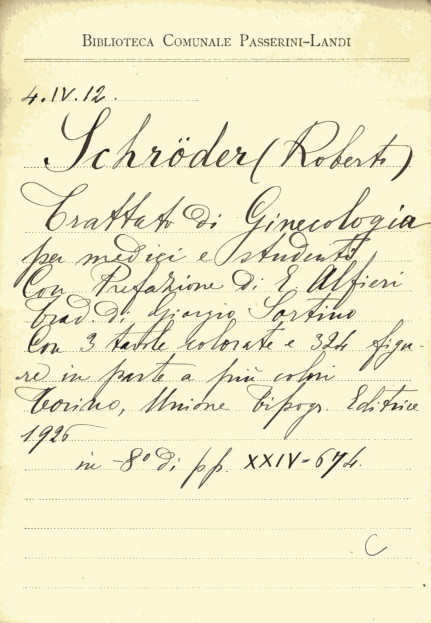 BIBLIOTECA COMUNALE PASSERINI-LANDI
4.IV.12.
Schröder (Roberto)
Trattato di Ginecologia
per medici e studenti
Con Prefazione di E. Alfieri
Trad. di Giorgio Sortino
Con 3 tavole colorate e 324 figu-
re in parte a più colori
Torino, Unione Tipogr. Editrice
1926
in -8° di pp. XXIV-674.
C